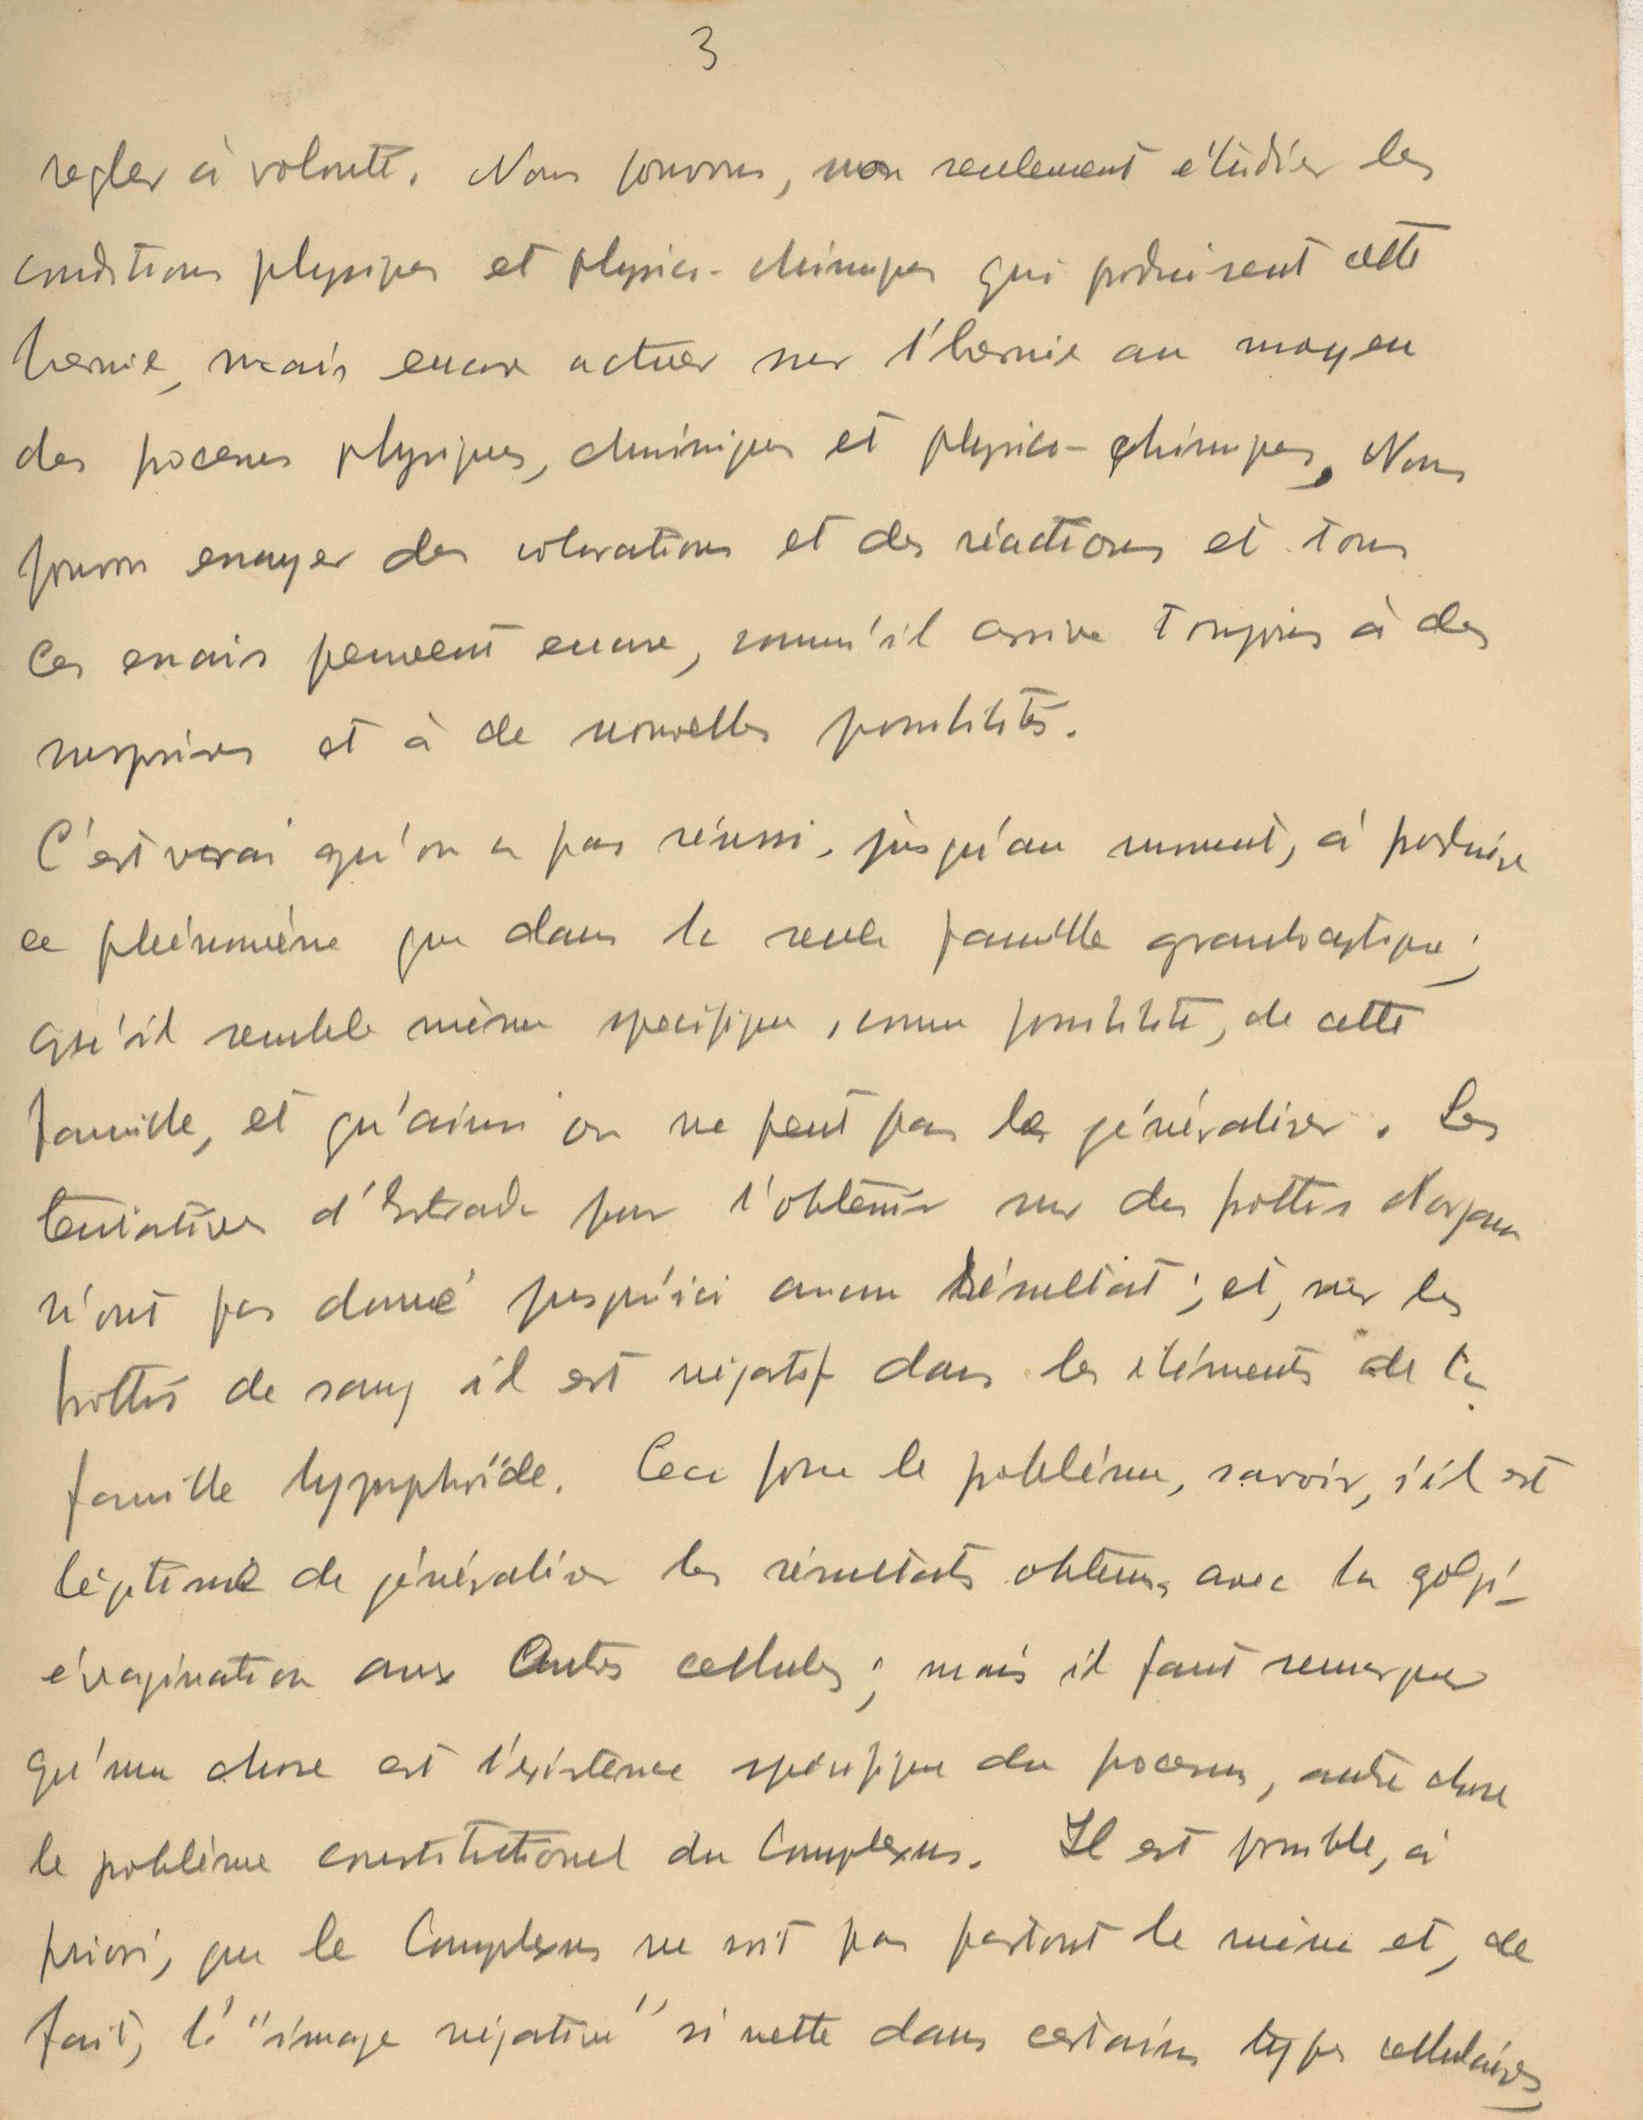 3
regler à volonté. Nous pouvons, non seulement étudier les
conditions physiques et physico-chimiques qui produisent cette
hernie, mais encore actuer sur l'hernie au moyen
des processus physiques, chimiques et physico-chimiques. Nous
pouvons essayer des colorations et des réactions et tous
ces essais peuvent encore, comm'il arrive toujours à des
surprises et à de nouvelles possibilités.
C'est vrai qu'on a pas réussi, jusqu'au moment, à produire
ce phénomène que dans la seule famille granulocytique;
qu'il semble même specifique, comme possibilité, de cette
famille, et qu'ainsi on ne peut pas le généraliser. Les
tentatives d'Estrada pour l'obtenir sur des frottis d'organes
n'ont pas donné jusqu'ici aucun résultat; et, sur les
frottis de sang il est négatif dans les éléments de la
famille lymphoïde. Ceci pose le problème, savoir, s'il est
légitime de généraliser les résultats obtenus avec la golgi-
évagination aux autres cellules; mais il faut remarquer
qu'une chose est l'existence spécifique du processus, autre chose
le problème constitutionel du Complexus. Il est possible, à
priori, que le Complexus ne soit pas partout le même et, de
fait, l' "image négative" si nette dans certains types cellulaires,